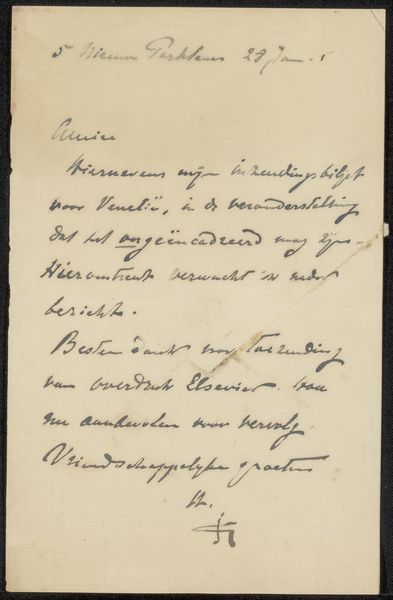 5 Nieuwe Parklaan 28 Jan.
Amice
Hiernevens mijn inzendingsbiljet
voor Venetië, in de veronderstelling
dat het ongeëncadreerd mag zijn.
Hieromtrent verwacht ik nader
bericht.
Besten dank voor toezending
van overdruk Elsevier.
me aanbevolen voor vervolg.
Vriendschappelijke groeten